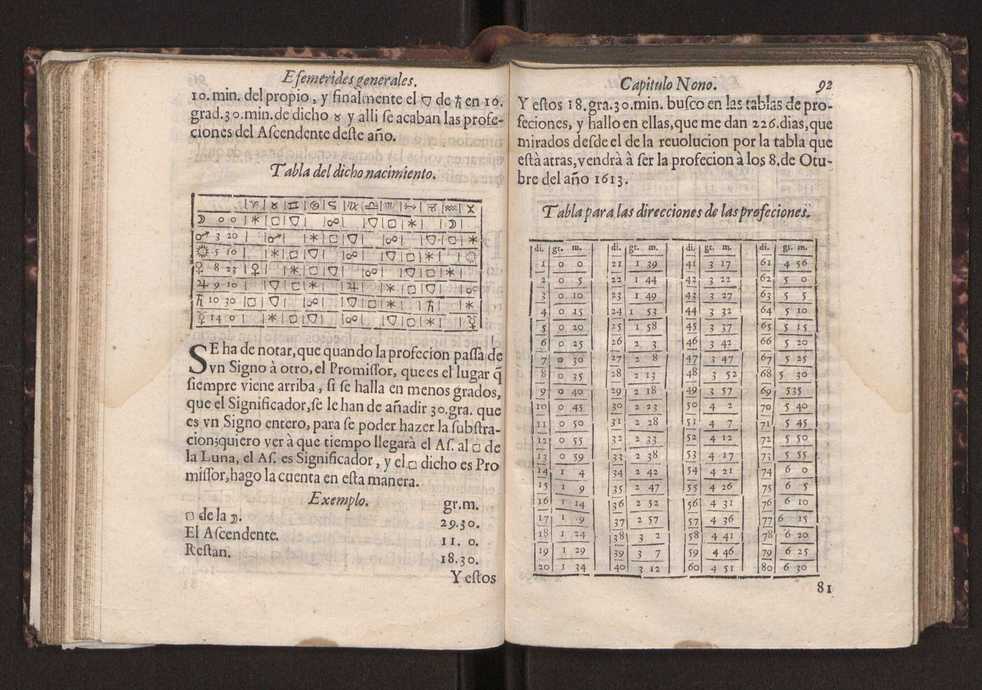 Efemerides generales.
10. min. del propio, y finalmente el ▽ de ♄ en 10.
grad. 30. min. de dicho ♉ y alli se acaban las profe-
ciones del Ascendente deste año.
Tabla del dicho nacimiento.
|♈|♉|♊|♋|♌|♍|♎|♏|♐|♑|♒|♓
☽ 0 0 |✶|□|▽| |☍| |▽|□|✶| |☽|
♂ 3 20 | |♂| |✶|□|▽| |☍| |▽|□|✶
☼ 5 10 | |✶|□|▽| |☍| |▽|□|✶| |☼
♀ 8 23 |♀| |✶|□|▽| |☍| |▽|□|✶|
♃ 9 10 | |▽|□|✶| |♃| |✶|□|▽| |☍
♄ 10 30 |□|▽| |☍| |▽|□|✶| |♄| |✶
☿ 14 0 | |✶|□|▽| |☍| |▽|□|✶| |☿
SE ha de notar, que quando la profecion passa de
vn Signo à otro, el Promissor, que es el lugar q̃
siempre viene arriba, si se halla en menos grados,
que el Significador, se le han de añadir 30. gra. que
es vn Signo entero, para se poder hazer la substra-
cion; quiero ver à que tiempo llegará el As. al □ de
la Luna, el As. es Significador, y el □ dicho es Pro
missor, hago la cuenta en esta manera.
Exemplo. gr. m.
□ de la ☽. 29. 30.
El Ascendente. 11. 0.
Restan. 18. 30.
Y estos
Capitulo Nono. 92
Y estos 18. gra. 30. min. busco en las tablas de pro-
feciones, y hallo en ellas, que me dan 226. dias, que
mirados desde el de la reuolucion por la tabla que
està atras, vendrà à ser la profecion à los 8. de Otu-
bre del año 1613.
Tabla para las direcciones de las profeciones.
di. | gr. m. | di. | gr. m. | di. | gr. m. | di. | gr. m.
1 | 0 0 | 21 | 1 39 | 41 | 3 17 | 61 | 4 56
2 | 0 5 | 22 | 1 44 | 42 | 3 22 | 62 | 5 0
3 | 0 10 | 23 | 1 49 | 43 | 3 27 | 63 | 5 5
4 | 0 15 | 24 | 1 53 | 44 | 3 32 | 64 | 5 10
5 | 0 20 | 25 | 1 58 | 45 | 3 37 | 65 | 5 15
6 | 0 25 | 26 | 2 3 | 46 | 3 42 | 66 | 5 20
7 | 0 30 | 27 | 2 8 | 47 | 3 47 | 67 | 5 25
8 | 0 35 | 28 | 2 13 | 48 | 3 52 | 68 | 5 30
9 | 0 40 | 29 | 2 18 | 49 | 3 57 | 69 | 535
10 | 0 45 | 30 | 2 23 | 50 | 4 2 | 70 | 5 40
11 | 0 50 | 31 | 2 28 | 51 | 4 7 | 71 | 5 45
12 | 0 55 | 32 | 2 33 | 52 | 4 12 | 72 | 5 50
13 | 0 59 | 33 | 2 38 | 53 | 4 17 | 73 | 5 55
14 | 1 4 | 34 | 2 42 | 54 | 4 21 | 74 | 6 0
15 | 1 9 | 35 | 2 47 | 55 | 4 26 | 75 | 6 5
16 | 1 14 | 36 | 2 52 | 56 | 4 31 | 76 | 6 10
17 | 1 9 | 37 | 2 57 | 57 | 4 36 | 77 | 6 15
18 | 1 24 | 38 | 3 2 | 58 | 4 41 | 78 | 6 20
19 | 1 29 | 39 | 3 7 | 59 | 4 46 | 79 | 6 25
20 | 1 34 | 40 | 3 12 | 60 | 4 51 | 80 | 6 30
81